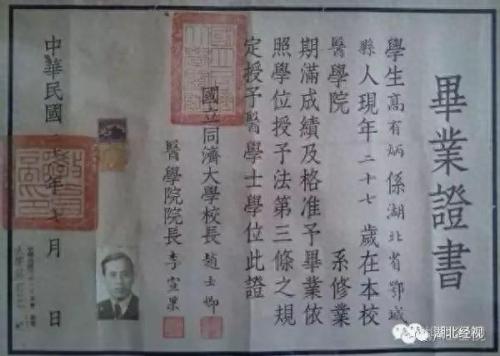 畢業證書
學生高有炳係湖北省鄂城
縣人現年二十七歲在本校
醫學院 系修業
期滿成績及格准予畢業依
照學位授予法第三條之規
定授予醫學士學位此證
國立同濟大學校長
醫學院院長李宣果
中華民國 年七月 日
湖北经视